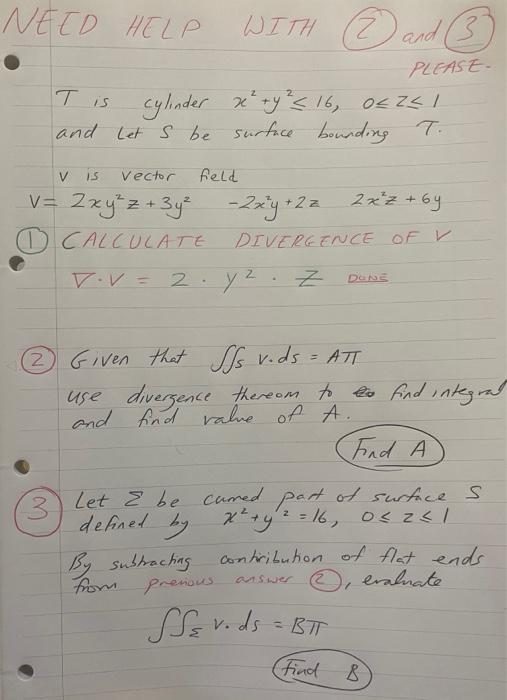 NEED HELP WITH ② and ③
PLEASE-
T is cylinder x²+y²≤16, 0≤Z≤1
and Let S be surface bounding T.
V is vector field
V= 2xy²z+3y² -2x²y+2z 2x²z+6y
① CALCULATE DIVERGENCE OF V
∇·V = 2·y²·Z DONE
② Given that ∬s v.ds = Aπ
use divergence thereom to find integral
and find value of A.
Find A
③ Let Σ be curved part of surface S
defined by x²+y²=16, 0≤z≤1
By subtracting contribution of flat ends
from previous answer ②, evaluate
∬Σ v.ds = Bπ
find B